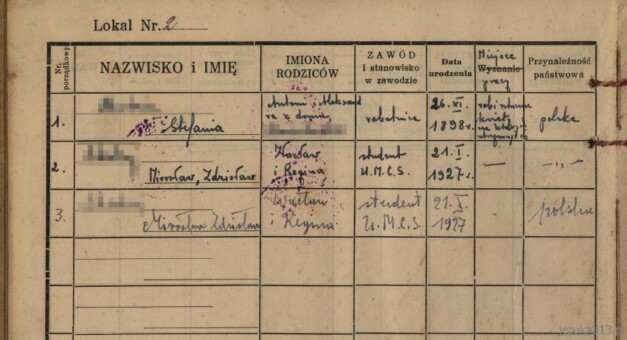 Lokal Nr. 2
Nr. porządkowy
NAZWISKO i IMIĘ
IMIONA
RODZICÓW
ZAWÓD
i stanowisko
w zawodzie
Data
urodzenia
Miejsce
Wyznanie
pracy
Przynależność
państwowa
1.
Stefania
Antoni i Aleksand
ra z domu
robotnica
26. XI.
1898 r.
robi sztuczne
kwiaty
polska
2.
Mirosław, Zdzisław
Wacław
i Regina
student
U.M.C.S.
21. I.
1927 r.
—
—„—
3.
Mirosław Zdzisław
Wacław
i Regina
student
U.M.C.S.
21. I.
1927
polska